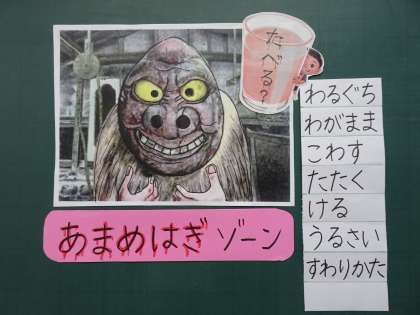 たべる？
わるぐち
わがまま
こわす
たたく
ける
うるさい
すわりかた
あまめはぎ ゾーン